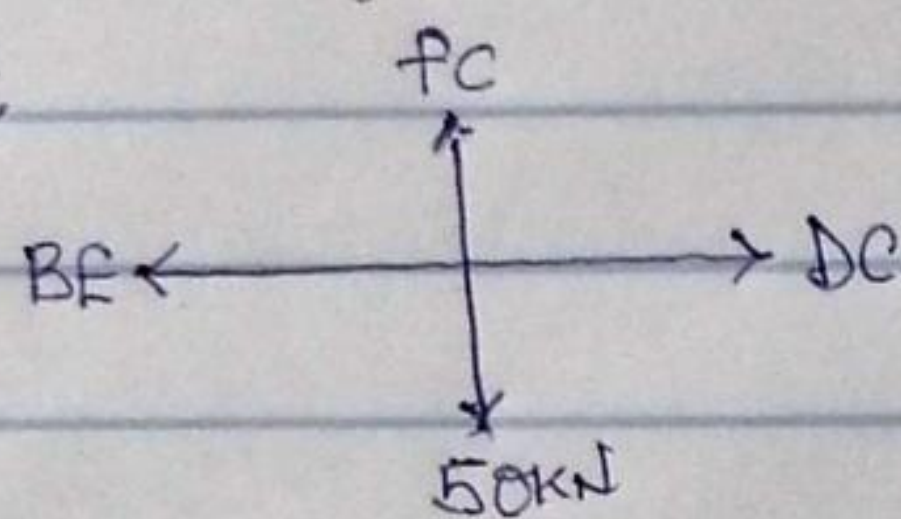 fC
BE DC
50KN